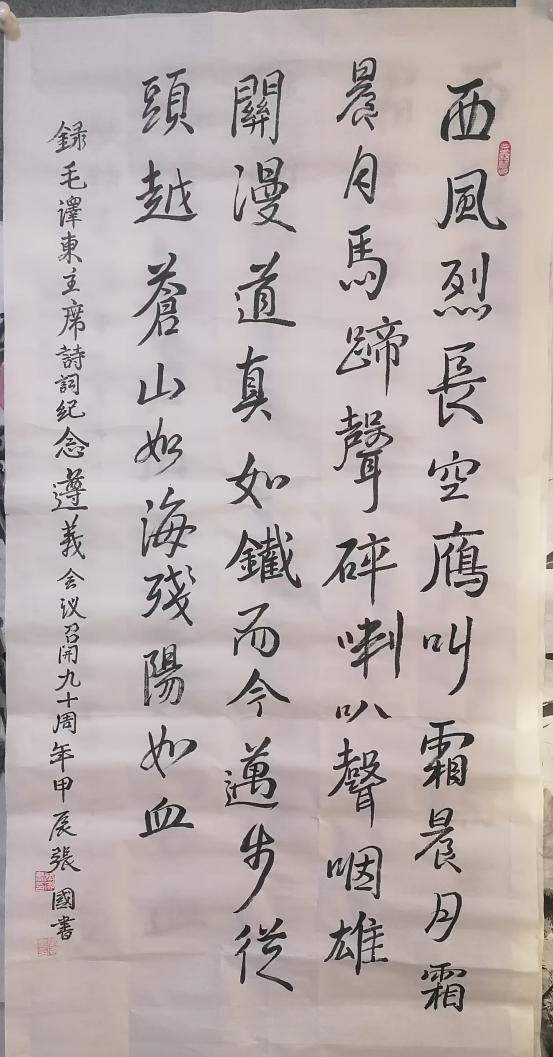 西風烈長空鴈叫霜晨月霜
晨月馬蹄聲碎喇叭聲咽雄
關漫道真如鐵而今邁步從
頭越蒼山如海殘陽如血
録毛澤東主席詩詞紀念遵義会议召開九十周年甲辰張國書